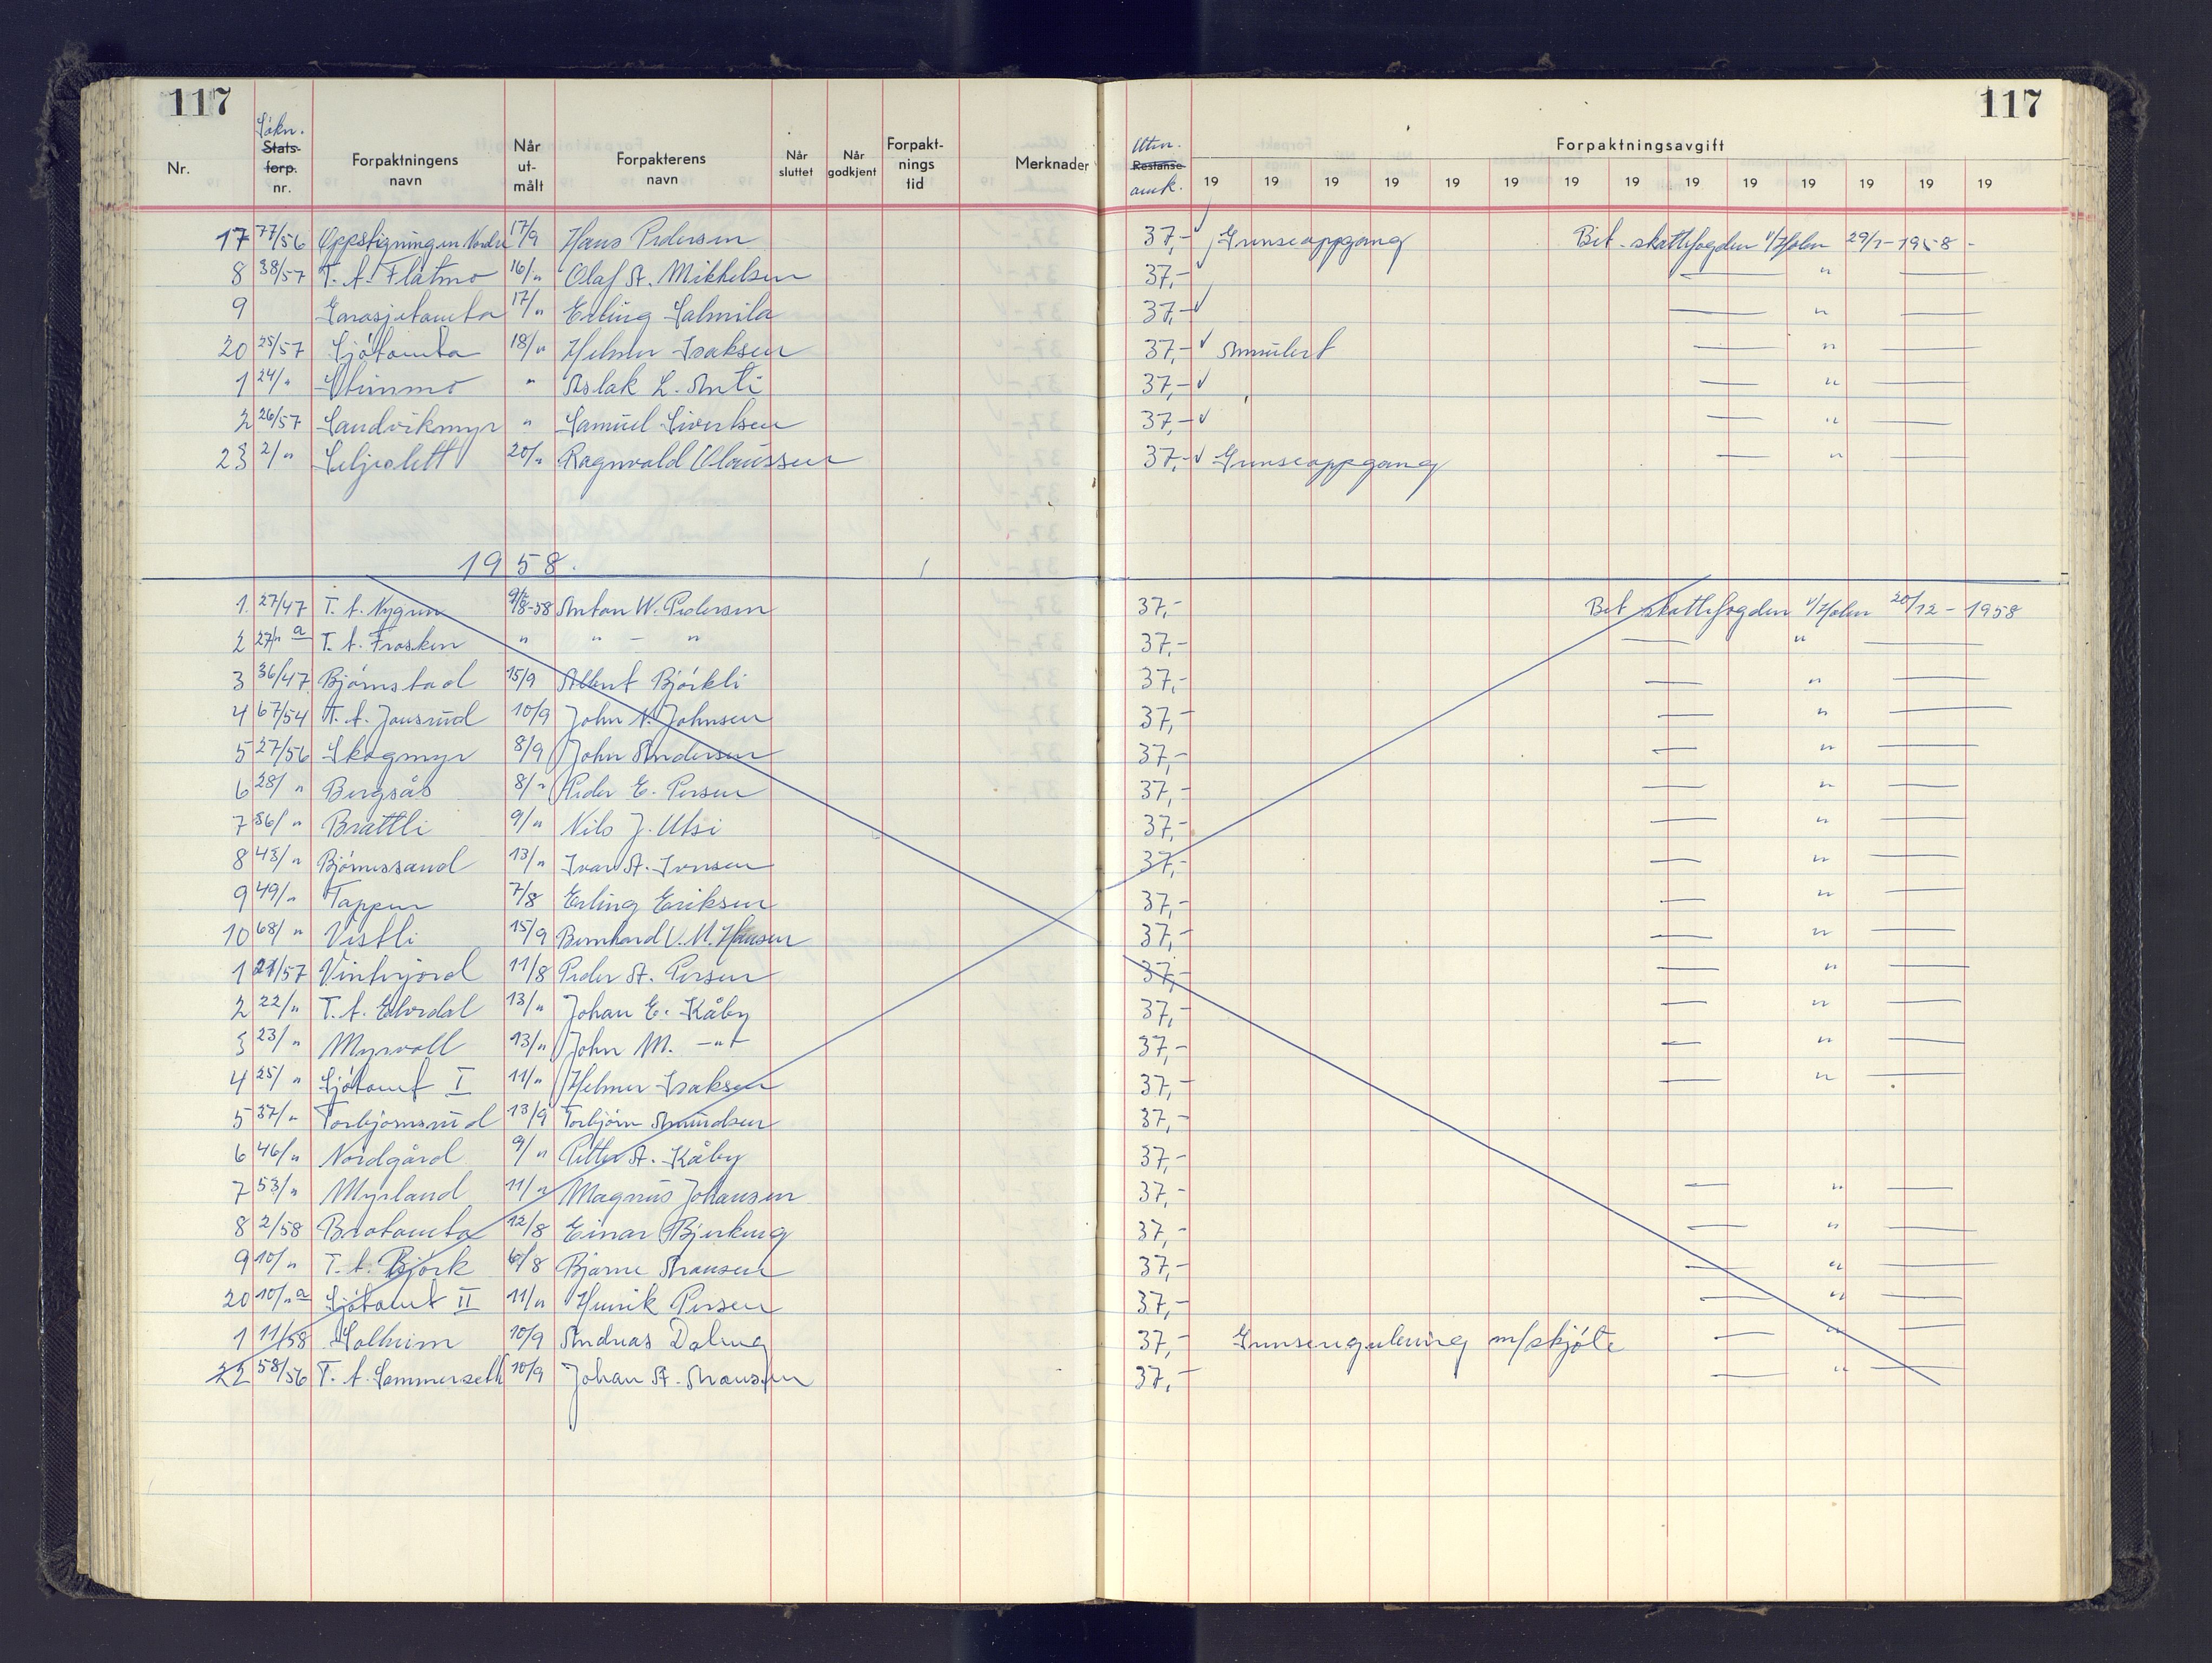 117 117
Søkn. Utm.
Nr. Stats- forp. nr. Forpaktningens navn Når ut- målt Forpakterens navn Når sluttet Når godkjent Forpakt- nings tid Merknader Restanse amk. Forpaktningsavgift
19 19 19 19 19 19 19 19 19 19 19 19 19 19
17 77/56 Oppstigningen Nordre 17/9 Hans Pedersen 37,- Grenseoppgang Bet. skattefogden v/Holm 29/1-1958
8 38/57 T. A. Flåtmo 16/" Olaf A. Mikkelsen 37,- "
9 17/" Erling Salmila 37,- "
20 25/57 Sjøtomta 18/" Helmer Isaksen 37,- Annulert "
1 24/" " Aslak L. Anti 37,- "
2 26/57 Sandvikmyr " Samuel Sivertsen 37,- "
23 2/" Seljeslett 20/" Ragnvald Olaussen 37,- Grenseoppgang "
1958.
1. 27/47 T. A. Nygren 9/8-58 Anton W. Pedersen 37,- Bet skattefogden v/Holm 20/12-1958
2 27/" a T. A. Frosken " " - " 37,- "
3 36/47 Bjørnstad 15/9 Albert Bjørkli 37,- "
4 67/54 T. A. Jonsrud 10/9 John N. Johnsen 37,- "
5 27/56 Skogmyr 8/9 John Andersen 37,- "
6 28/" Bergsås 8/" Peder E. Persen 37,- "
7 36/" Brattli 9/" Nils J. Utsi 37,- "
8 43/" Bjørnessand 13/" Ivar A. Iversen 37,- "
9 49/" Tappen 7/8 Erling Eriksen 37,- "
10 68/" Vestli 15/9 Bernhard U. M. Hansen 37,- "
1 21/57 Vinterjord 11/8 Peder A. Persen 37,- "
2 22/" T. A. Elvedal 13/" Johan E. Kåby 37,- "
3 23/" Myrvoll 13/" John M. -"- 37,- "
4 25/" Sjøtomt I 11/" Helmer Isaksen 37,- "
5 37/" Torbjørnsrud 13/9 Torbjørn Amundsen 37,-
6 46/" Nordgård 9/" Petter A. Kåby 37,-
7 53/" Myrland 11/" Magnus Johansen 37,- "
8 2/58 Brotomta 12/8 Einar Bjerkeng 37,- "
9 10/" T. A. Bjørk 6/8 Bjarne Aronsen 37,- "
20 10/" a Sjøtomt II 11/" Henrik Persen 37,- "
1 11/58 Solheim 10/9 Andreas Daleng 37,- Grenseregulering m/skjøte "
22 58/56 T. A. Sommerseth 10/9 Johan A. Aronsen 37,- "